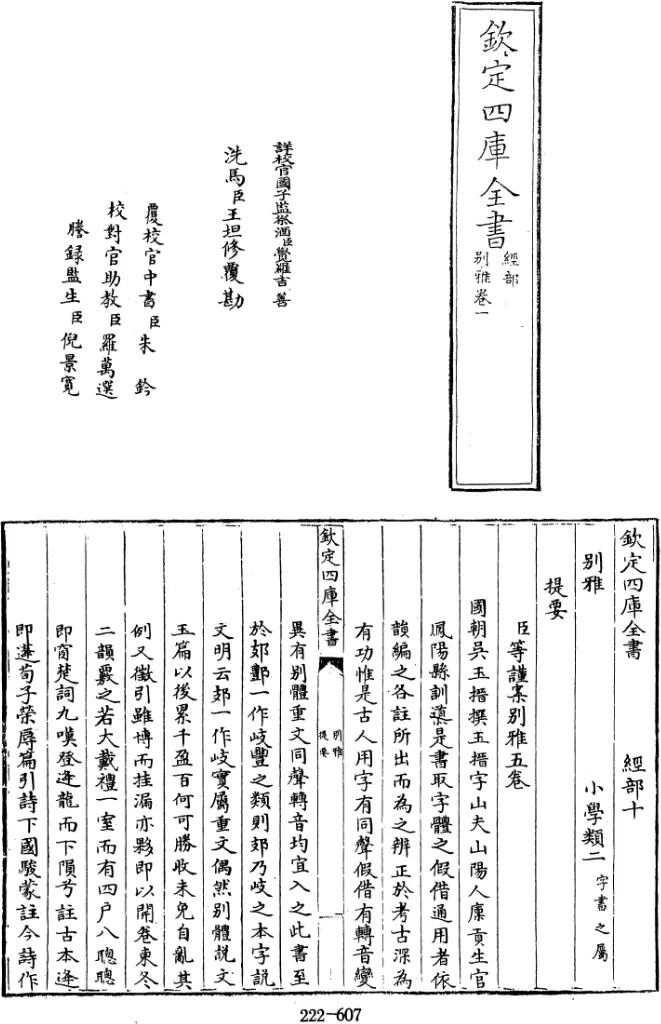 欽定四庫全書
經部
别雅卷一
詳校官國子監祭酒臣覺羅吉善
洗馬臣王坦修覆勘
覆校官中書臣朱鈐
校對官助教臣羅萬選
謄録監生臣倪景寛
欽定四庫全書 經部十
别雅 小學類二字書之屬
提要
臣等謹案别雅五卷
國朝吳玉搢撰玉搢字山夫山陽人廪貢生官
鳳陽縣訓導是書取字體之假借通用者依
韻編之各註所出而為之辨正於考古深為
有功惟是古人用字有同聲假借有轉音變
欽定四庫全書
别雅
提要
一
異有别體重文同聲轉音均宜入之此書至
於郊酆一作岐豐之類則郊乃岐之本字説
文明云郊一作岐實屬重文偶然别體説文
玉篇以後累千盈百何可勝收未免自亂其
例又徵引雖博而挂漏亦夥即以開卷東冬
二韻覈之若大戴禮一室而有四户八聰聰
即窗楚詞九嘆登逢龍而下隕兮註古本逢
即蓬荀子榮辱篇引詩下國駿蒙註今詩作
222-607